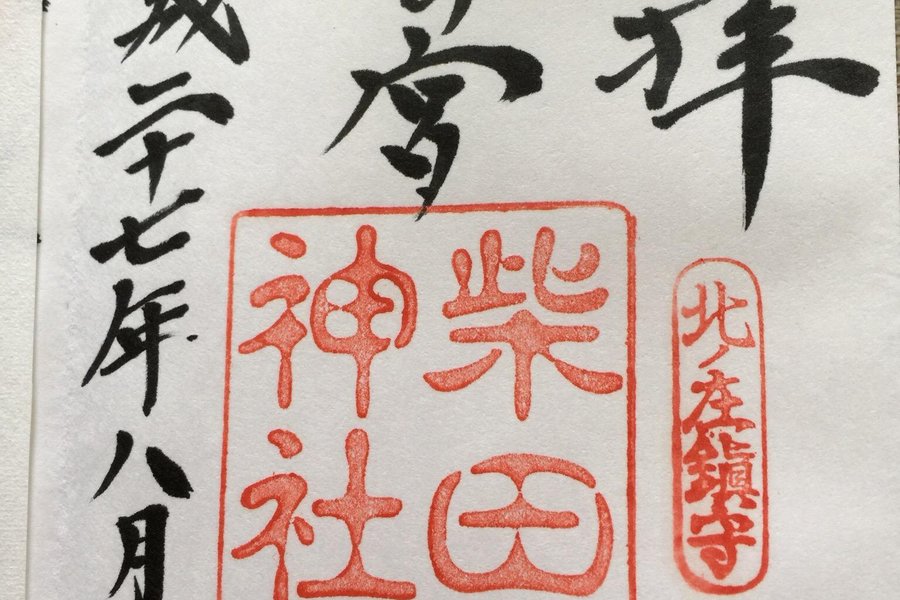 拝
北ノ庄鎮守
宮
柴田
神社
成二十七年八月